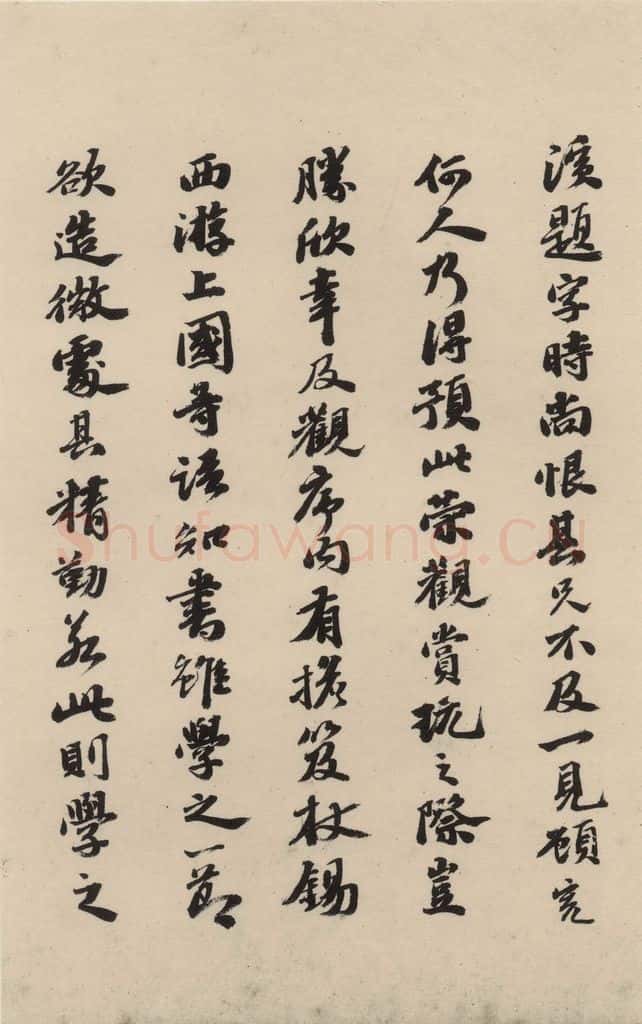 濱題字時尚恨其兄不及一見顧
何人乃得預此榮觀賞玩之際豈
勝欣幸及觀序內有擔笈杖錫
西游上國等語知書雖學之一節
欲造微處其精勤若此則學之
shufawang.cn